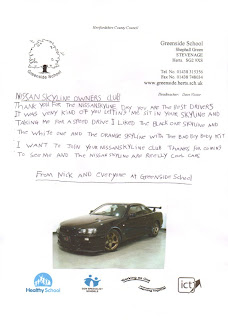 Hertfordshire County Council
Greenside School
Shephall Green
STEVENAGE
Herts SG2 9XS
Headteacher: Dave Victor
Tel No. 01438 315356
Fax No. 01438 748034
www.greenside.herts.sch.uk
Greenside School
NISSAN SKYLINE OWNERS CLUB
THANK YOU FOR THE NISSAN SKYLINE DAY YOU ARE THE BEST DRIVERS
IT WAS VERY KIND OF YOU LETTING ME SIT IN YOUR SKYLINE AND
TAKING ME FOR A SPEED DRIVE I LIKED THE BLACK ONE SKYLINE AND
THE WHITE ONE AND THE ORANGE SKYLINE WITH THE BODY KIT
I WANT TO JOIN YOUR NISSAN SKYLINE CLUB THANKS FOR COMING
TO SEE ME AND THE NISSAN SKYLINE ARE REALLY COOL CARS
FROM NICK AND EVERYONE AT GREENSIDE SCHOOL
Healthy School
ict